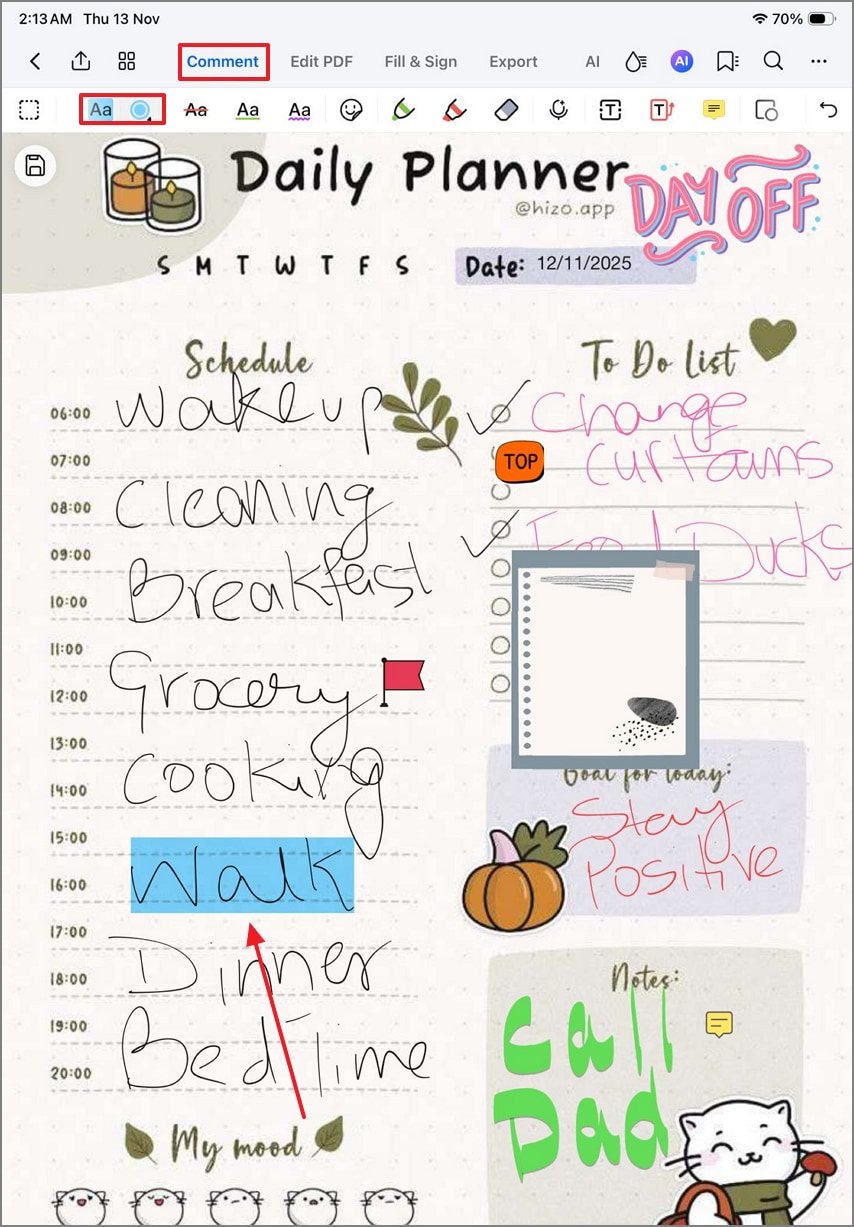 2:13 AM Thu 13 Nov 70%
Comment Edit PDF Fill & Sign Export AI AI
Aa Aa Aa Aa T T
Daily Planner
@hizo.app
DAY OFF
S M T W T F S
Date: 12/11/2025
Schedule
06:00 Wake up
07:00
08:00 Cleaning
09:00
10:00 Breakfast
11:00
12:00 Grocery
13:00
14:00 Cooking
15:00
16:00 Walk
17:00
18:00 Dinner
19:00
20:00 Bed Time
My mood
To Do List
Change
TOP
Curtains
Ducks
Goal for today:
Stay
Positive
Notes:
Call
Dad